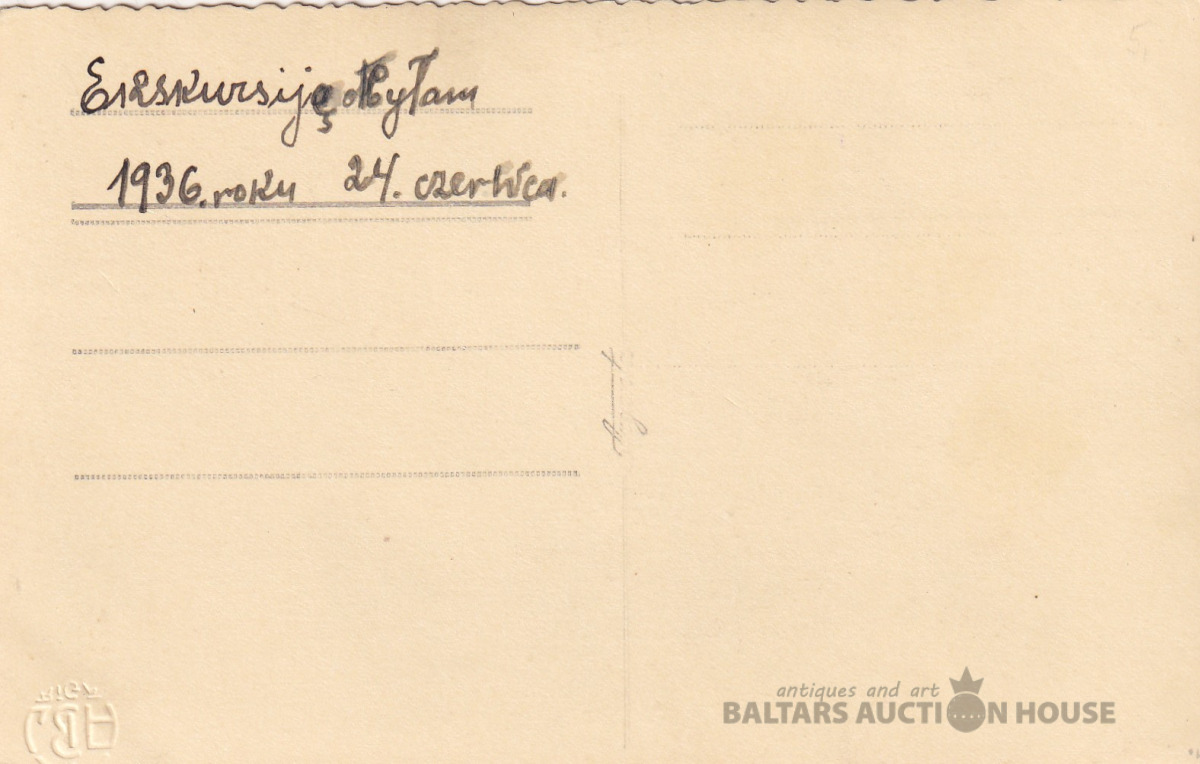 Ekskursiję odbyłam
1936. roku 24. czerwca.
antiques and art
BALTARS AUCTION HOUSE